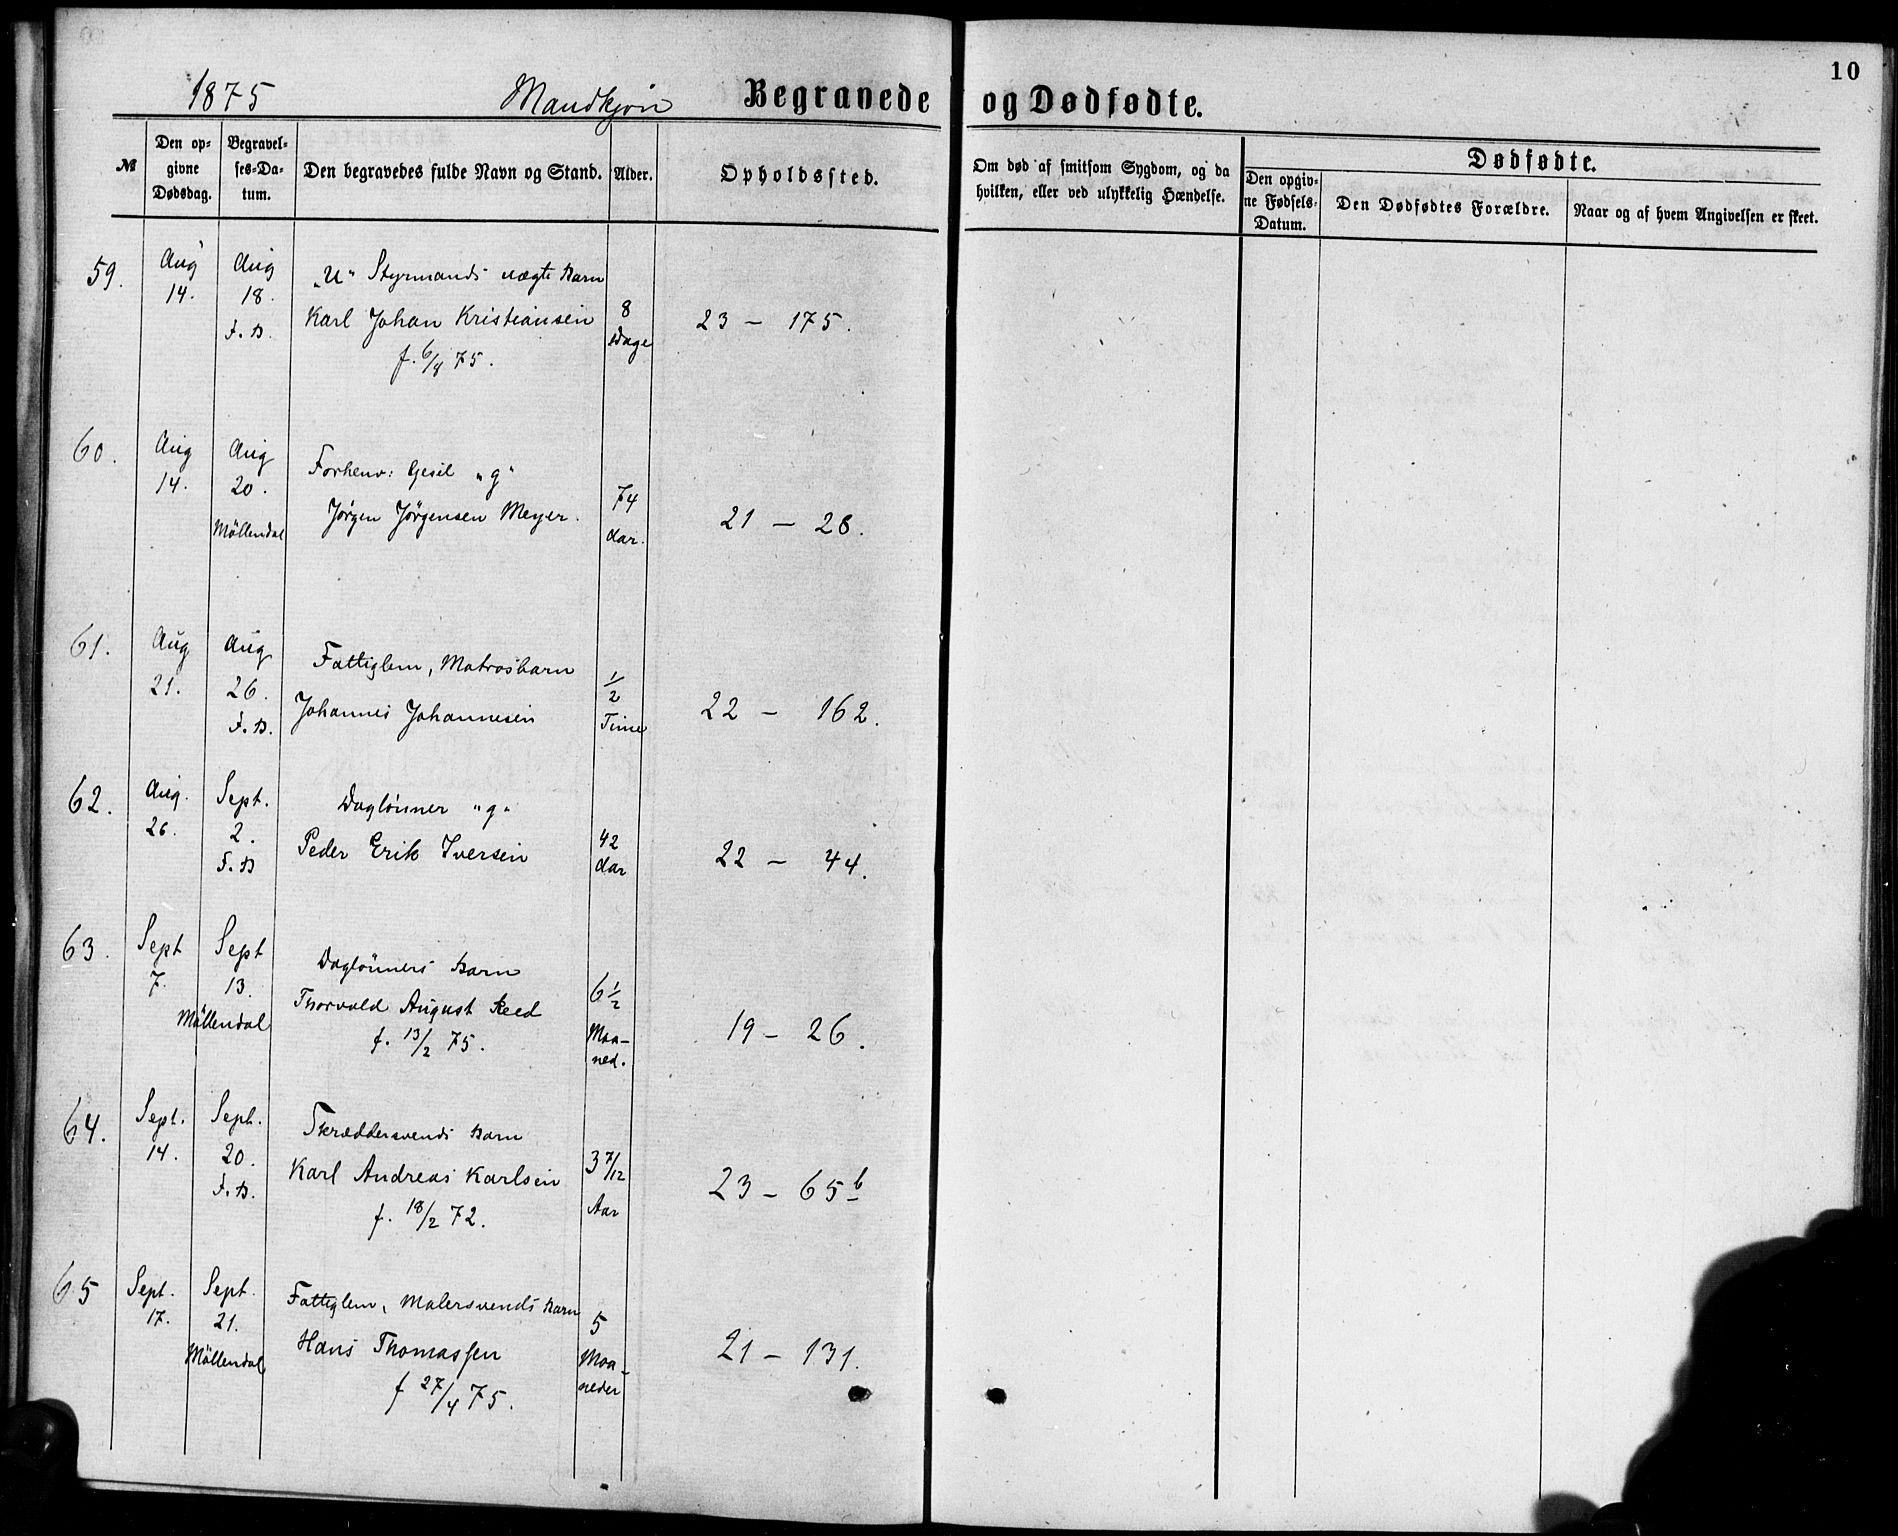 10
1875 Mandkjøn Begravede og Dødfødte.
№
Den op-
givne
Dødsdag.
Begravel-
ses-Da-
tum.
Den begravedes fulde Navn og Stand.
Alder.
Opholdssted.
Om død af smitsom Sygdom, og da
hvilken, eller ved ulykkelig Hændelse.
Dødfødte.
Den opgiv-
ne Fødsels-
Datum.
Den Dødfødtes Forældre.
Naar og af hvem Angivelsen er skeet.
59.
Aug
14.
Aug
18.
F. B.
„U“ Styrmands uægte Barn
Karl Johan Kristiansen
f. 6/8 75.
8
Dage
23 – 175.
60.
Aug
14.
Aug
20.
Möllendal
Forhenv: Gesel „g“
Jørgen Jørgensen Meyer.
74
Aar.
21 – 28.
61.
Aug
21.
Aug
26.
F. B.
Fattiglem, Matrosbarn
Johannes Johannesen
1/2
Time
22 – 162.
62.
Aug.
26.
Sept.
2.
F. B
Daglönner „g“
Peder Erik Iversen
42
Aar
22 – 44.
63.
Sept
7.
Sept
13.
Möllendal
Daglönners Barn
Thorvald August
f. 13/2 75.
6 1/2
Maa-
ned.
19 – 26.
64.
Sept.
14.
Sept.
20.
F. B.
Skræddersvends Barn
Karl Andreas Karlsen
f. 18/2 72.
3 7/12
Aar
23 – 65 b
65
Sept.
17.
Sept.
21.
Möllendal
Fattiglem, Malersvends Barn
Hans Thomassen
f 27/4 75.
5
Maa-
neder
21 – 131.